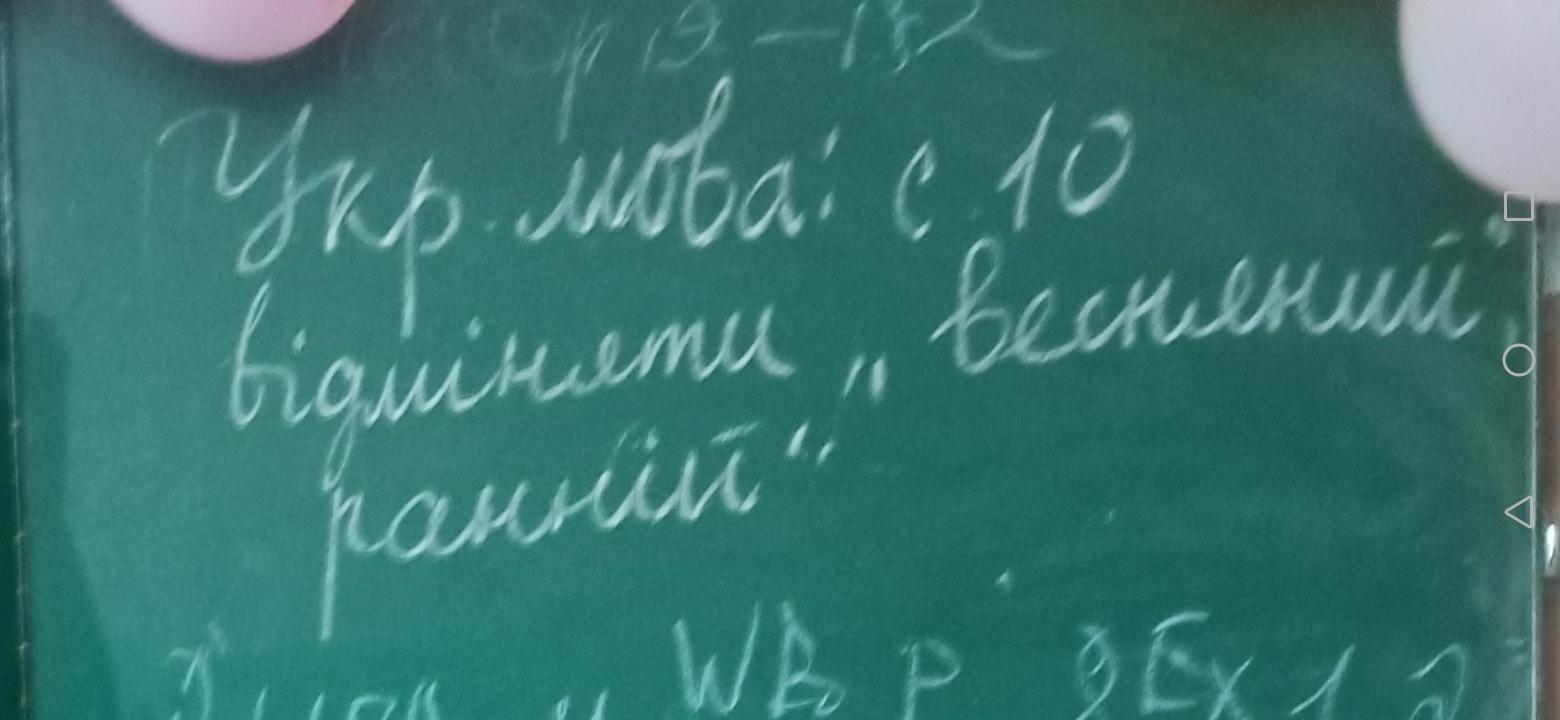 Укр. мова: с. 10
відміняти „ весняний",
ранній"
WB p 9 Ex 1, 2